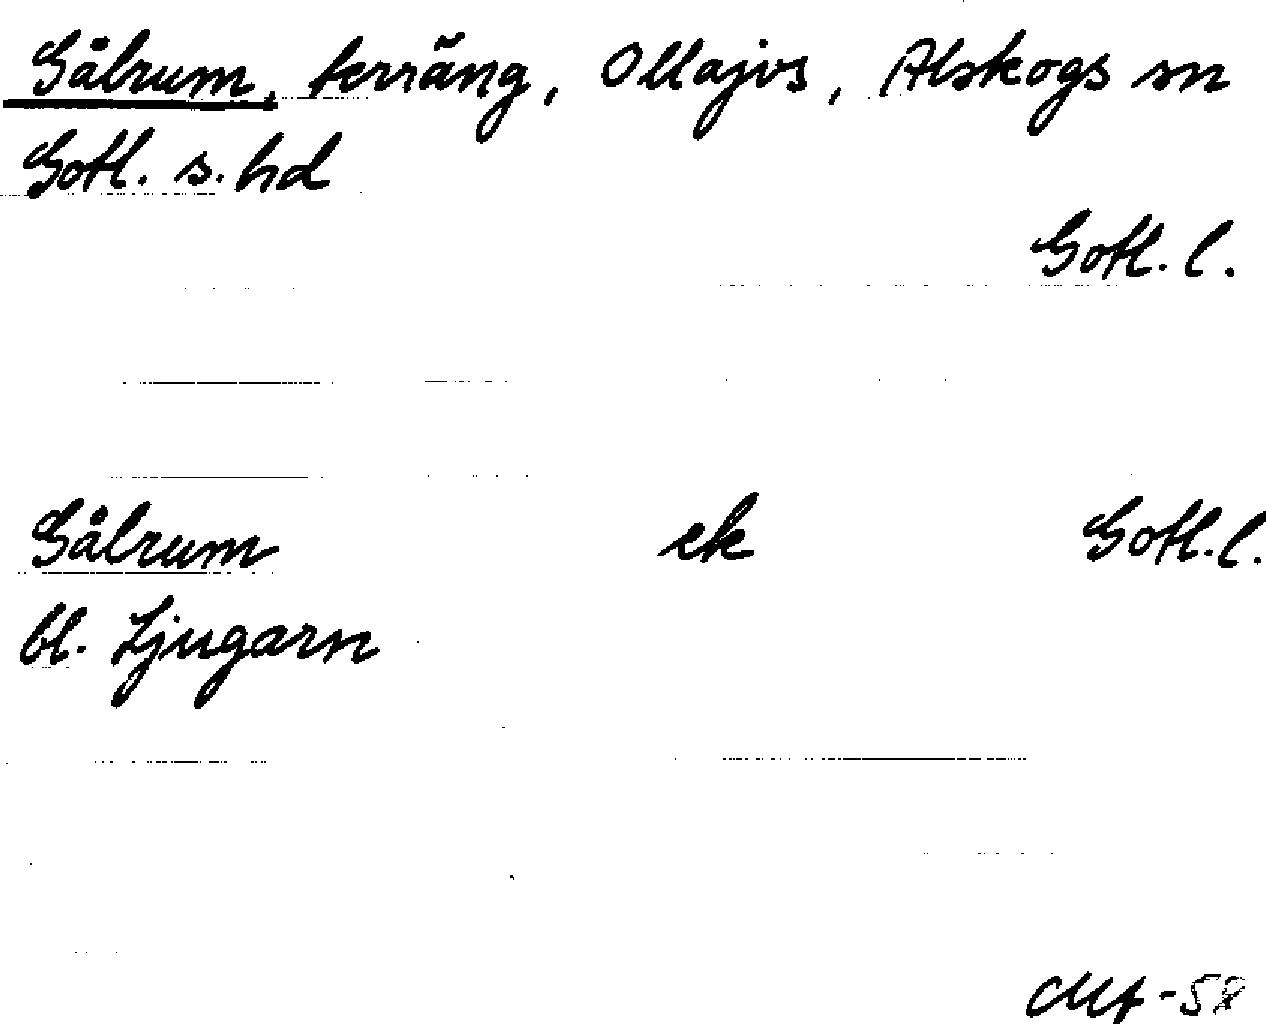 Gålrum, terräng, Ollajvs, Alskogs sn
Gotl. s. hd
Gotl. l.
Gålrum ek Gotl. l.
bl. Ljugarn